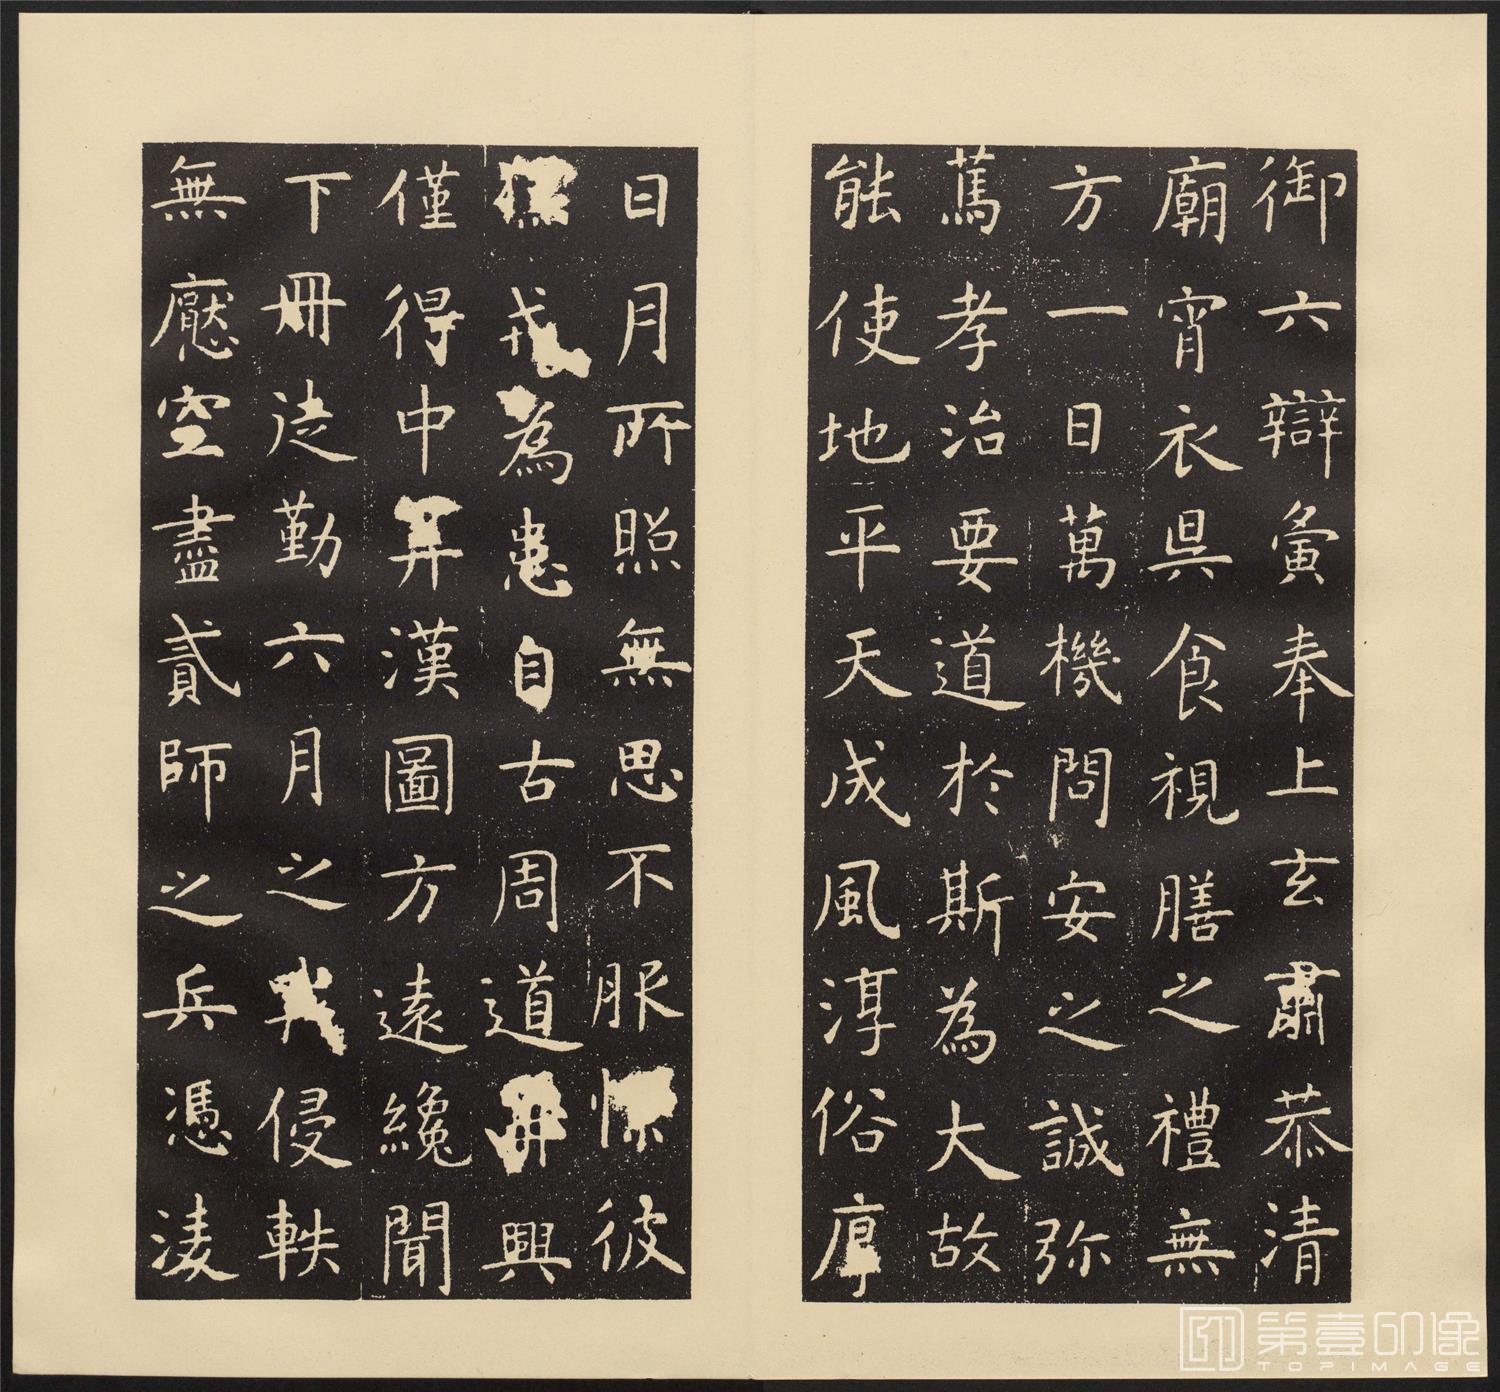 御六辯齎奉上玄肅恭清
廟宵衣昃食視膳之禮無
方一日萬機問安之誠弥
篤孝治要道於斯為大故
能使地平天成風淳俗厚
日月所照無思不服憬彼
獯戎為患自古周道再興
僅得中筭漢圖方遠纔聞
下冊徒勤六月之戰侵軼
無懕空盡貳師之兵憑淩
第壹印像
TOPIMAGE